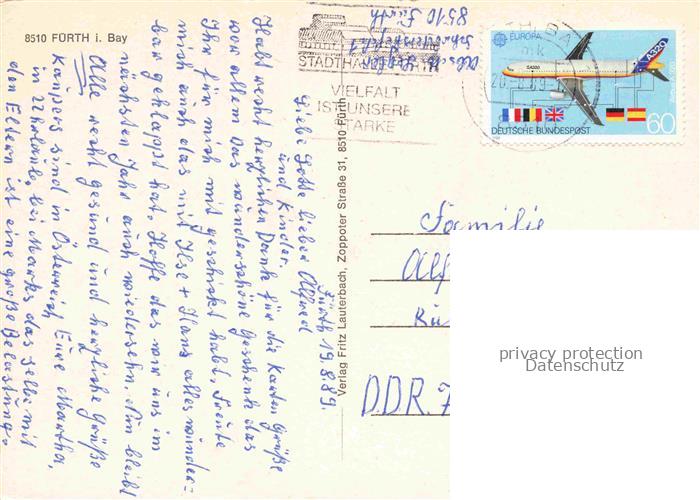 8510 FÜRTH i. Bay
STADTHALLE
VIELFALT
IST UNSERE
STÄRKE
EUROPA
A320
DEUTSCHE BUNDESPOST
60
8510 Fürth
Verlag Fritz Lauterbach, Zoppoter Straße 31, 8510 Fürth
Fürth 19.8.89.
Liebe Gotte lieber Alfred
und Kinder.
Habt recht herzlichen Dank für die Karten Grüße
vor allem das wunderschöne Geschenk das
Ihr für mich mit geschickt habt. Freute
mich auch das mit Ilse + Hans alles wunder=
bar geklappt hat. Hoffe das wir uns im
nächsten Jahr auch wiedersehn. Nun bleibt
Alle recht gesund und herzliche Grüße
sind in Österreich Eure Martha,
in Urlaub, bei das selbe mit
den Eltern ist eine große Belastung.
Familie
D.D.R. 7
privacy protection
Datenschutz